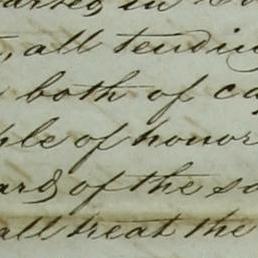 in
, all tendin
both of ca
ple of honor
ard of the so
all treat the